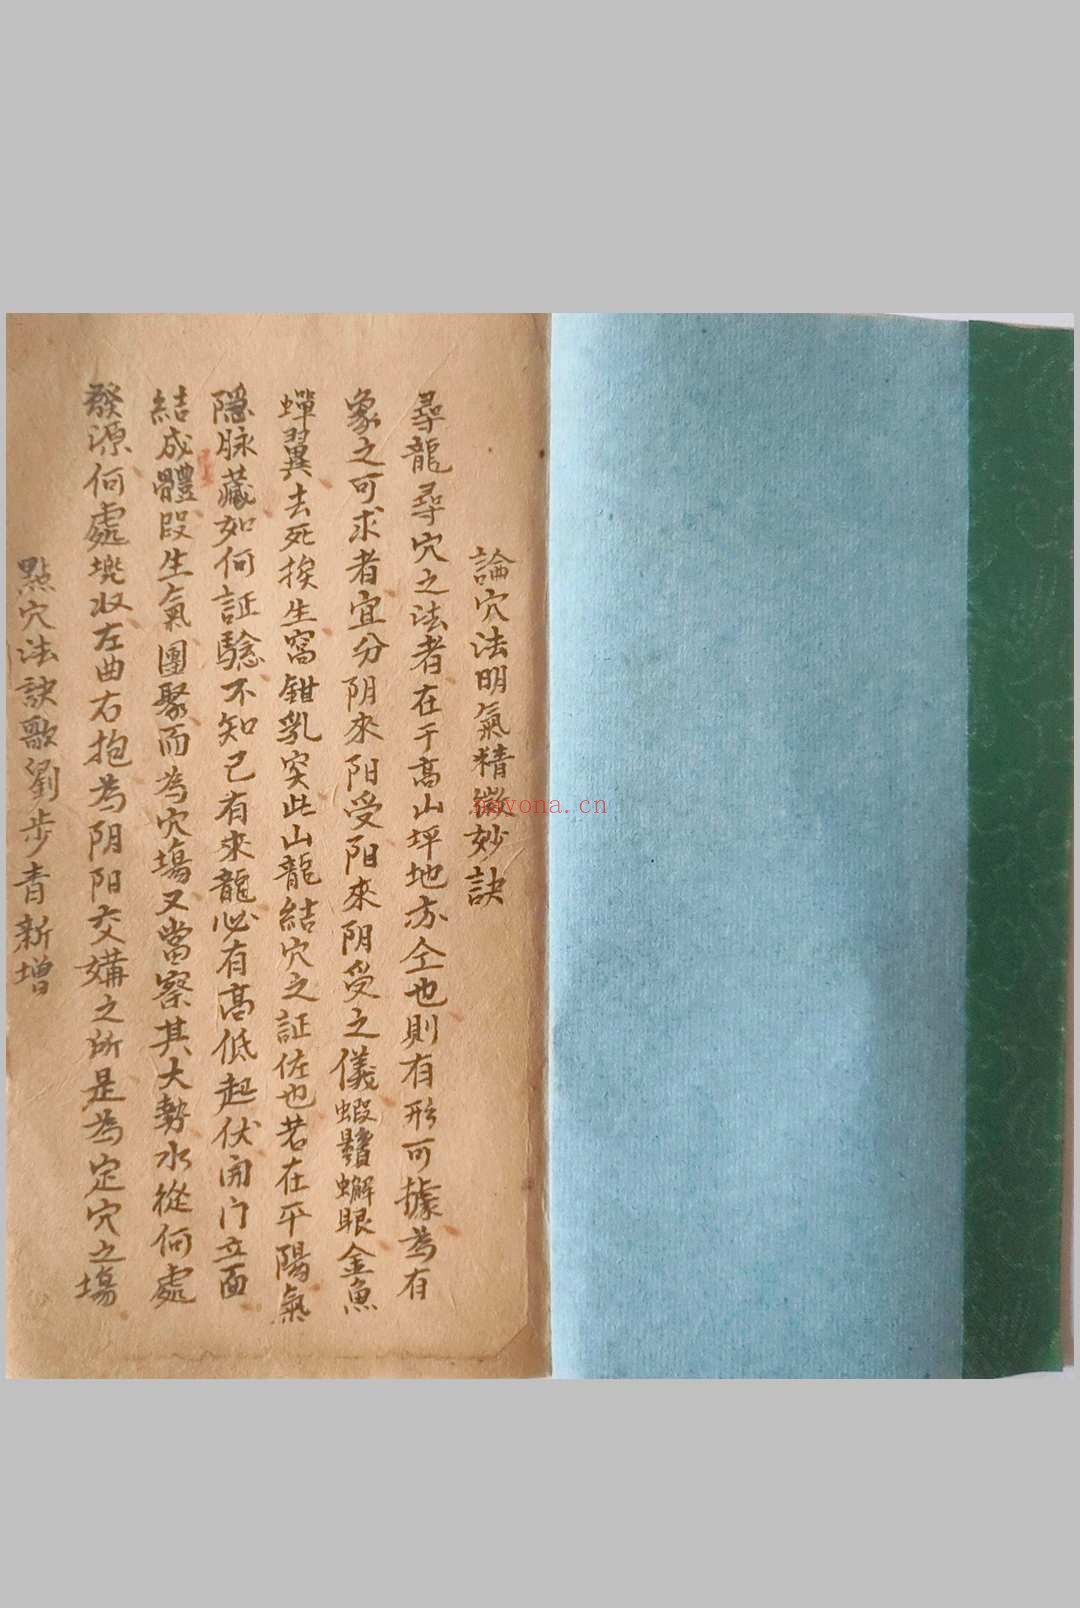 論穴法明氣精微妙訣
尋龍尋穴之法者在于高山坪地亦仝也則有形可據為有
象之可求者宜分阴來阳受阳來阴受之儀蝦鬚蠏眼金魚
蟬翼去死挨生窩鉗乳突此山龍結穴之証佐也若在平陽氣
隱脉藏如何証驗不知已有來龍必有高低起伏開门立面
結成體段生氣團聚而為穴塲又當察其大勢水從何處
發源何處収左曲右抱為阴阳交媾之所是為定穴之塲
點穴法訣歌劉步青新增
nayona.cn